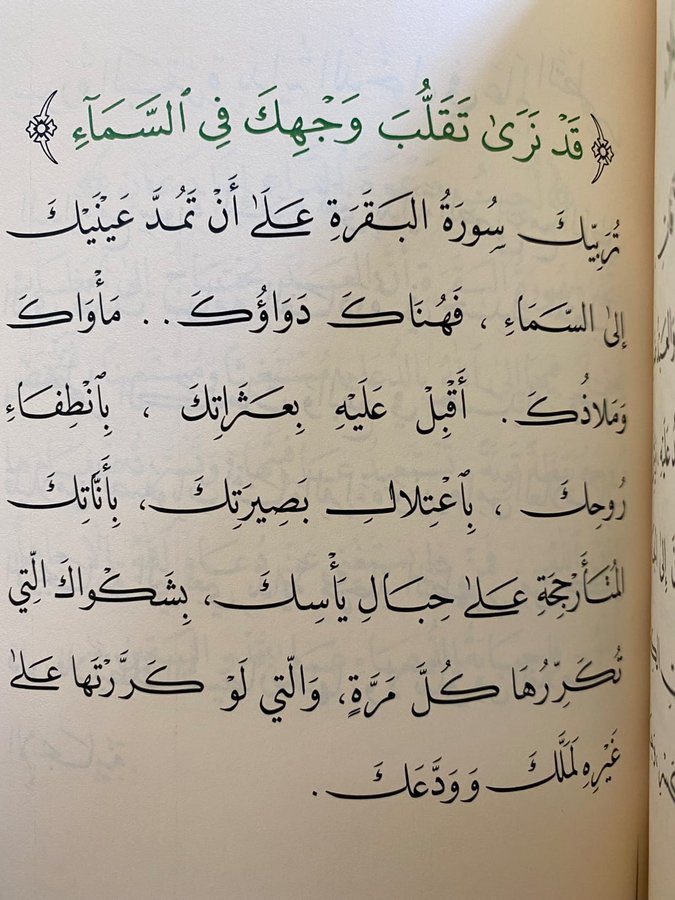 ﴿قَدْ نَرَىٰ تَقَلُّبَ وَجْهِكَ فِي ٱلسَّمَآءِ﴾
تُرَبِّيكَ سُورَةُ البَقَرَةِ عَلَىٰ أَنْ تَمُدَّ عَيْنَيْكَ
إِلىٰ السَّمَاءِ ، فَهُنَاكَ دَوَاؤُكَ.. مَأْوَاكَ
وَمَلاذُكَ. أَقْبِلْ عَلَيْهِ بِعَثَرَاتِكَ ، بِٱنْطِفَاءِ
رُوحِكَ ، بِٱعْتِلالِ بَصِيرَتِكَ، بِأَنَّاتِكَ
المُتَأَرْجِحَةِ عَلىٰ حِبَالِ يَأْسِكَ، بِشَكْوَاكَ الَّتِي
تُكَرِّرُهَا كُلَّ مَرَّةٍ، وَالَّتِي لَوْ كَرَّرْتَها عَلَىٰ
غَيْرِهِ لَمَلَّكَ وَوَدَّعَكَ.